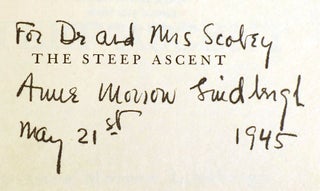 For Dr and Mrs Scobey
THE STEEP ASCENT
Anne Morrow Lindbergh
May 21st 1945